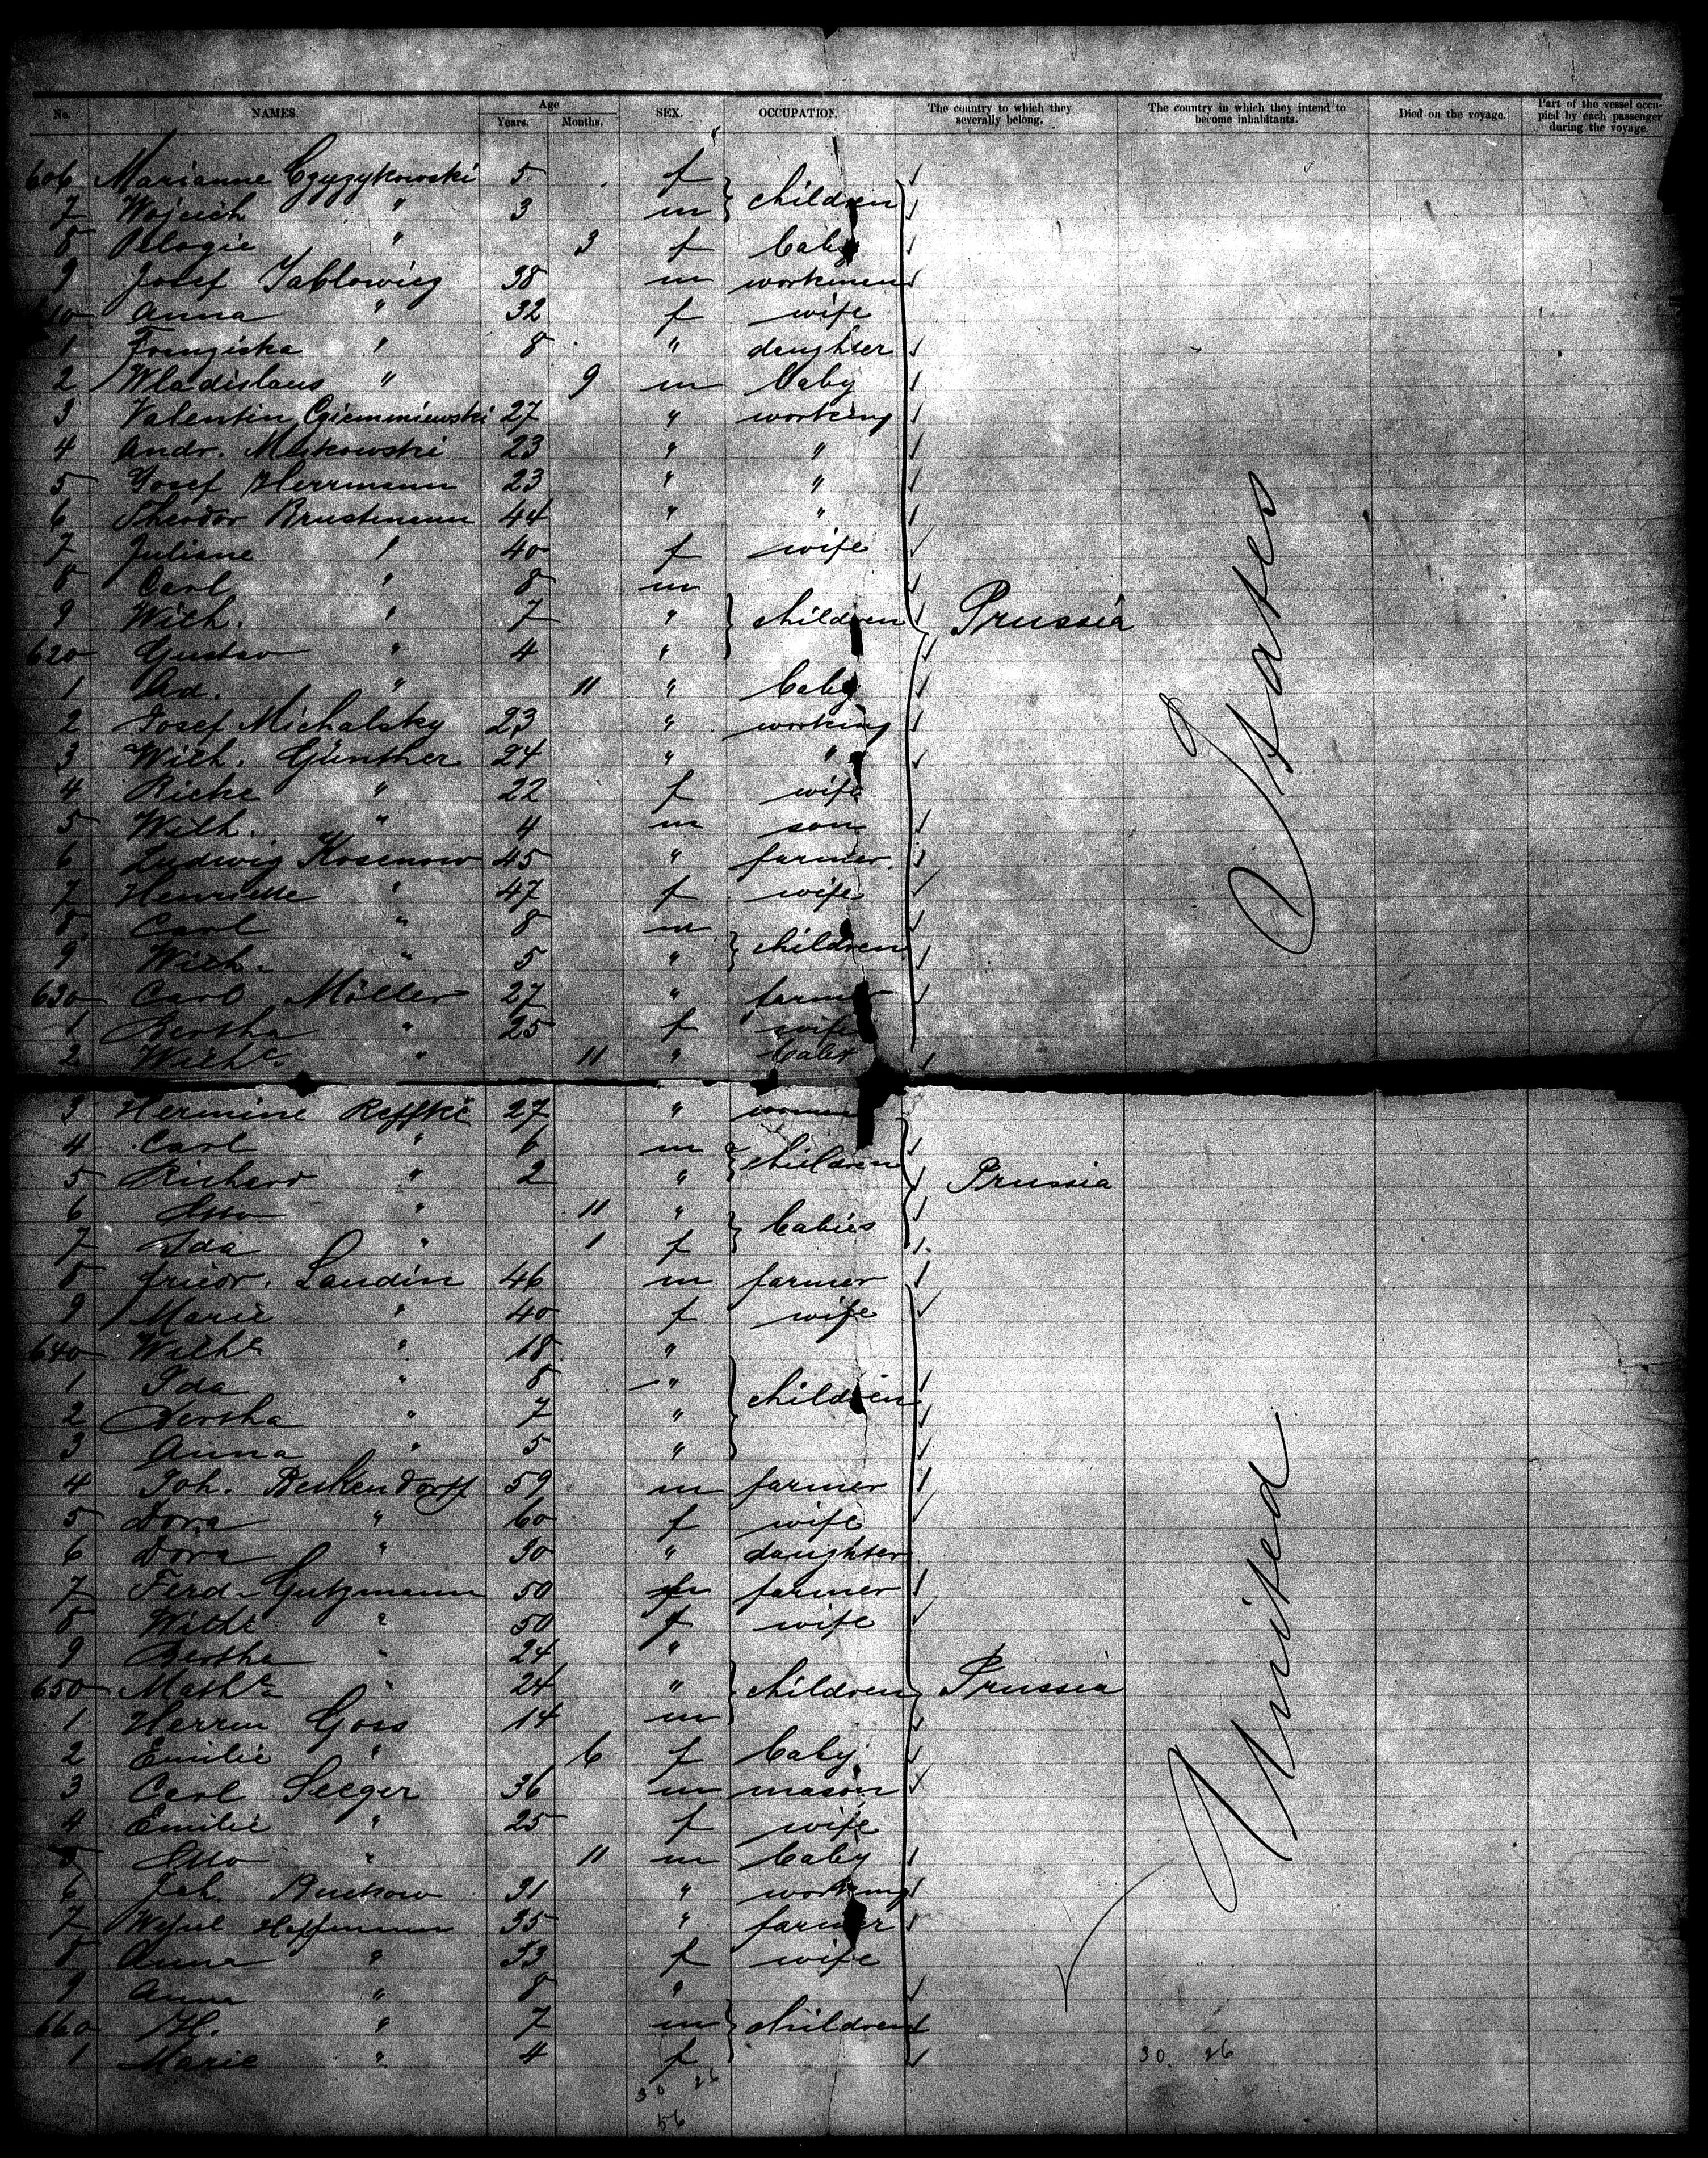 No. NAMES. Age Years. Months. SEX. OCCUPATION. The country to which they severally belong. The country in which they intend to become inhabitants. Died on the voyage. Part of the vessel occupied by each passenger during the voyage.
606 Marianne Czyzykowski 5 f
7 Wojcich " 3 m } children
8 Pelagie " 3 f baby
9 Josef Jablowicz 38 m workmen
10 Anna " 32 f wife
1 Franziska " 8 " daughter
2 Wladislaus " 9 m baby
3 Valentin 27 " working
4 Andr. Makowski 23 " "
5 Josef Herrmann 23 " "
6 Theodor Brustmann 44 " "
7 Juliane " 40 f wife
8 Carl " 8 m
9 Wilh. " 7 " } children Prussia
620 Gustav " 4 "
1 Ad. " 11 " baby
2 Josef Michalsky 23 " working
3 Wilh. Günther 24 " "
4 Rieke " 22 f wife
5 Wilh. " 4 m son
6 Ludwig Kosenow 45 " farmer
7 Henriette " 47 f wife
8 Carl " 8 m
9 Wilh. " 5 " } children
630 Carl Möller 27 " farmer
1 Bertha " 25 f wife
2 Wilhe " 11 " baby
3 Hermine Reffke 27 " women
4 Carl " 6 m
5 Richard " 2 " } children Prussia
6 Otto " 11 "
7 Ida " 1 f } babies
8 Friedr. Landin 46 m farmer
9 Marie " 40 f wife
640 Wilhe " 18 "
1 Ida " 8 "
2 Bertha " 7 " } children
3 Anna " 5 "
4 Joh. Beckendorff 59 m farmer
5 Dora " 60 f wife
6 Dora " 30 " daughter
7 Ferd. Gutzmann 50 m farmer
8 Wilhe " 50 f wife
9 Bertha " 24 "
650 Mathe " 24 " } children Prussia
1 Herrm Goss 14 m
2 Emilie " 6 f baby
3 Carl Seeger 36 m mason
4 Emilie " 25 f wife
5 Otto " 11 m baby
6 Joh. Buckow 31 " working
7 Hoffmann 35 " farmer
8 Anna " 33 f wife
9 Anna " 8 "
660 H. " 7 m } children
1 Marie " 4 f
30 26
56
30. 26
United States